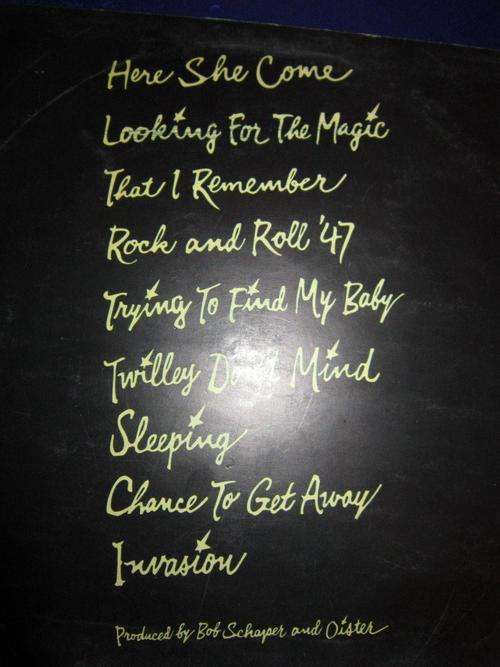 Here She Come
Looking For The Magic
That I Remember
Rock and Roll '47
Trying To Find My Baby
Twilley Mind
Sleeping
Chance To Get Away
Invasion
Produced by Bob Schaper and Oister